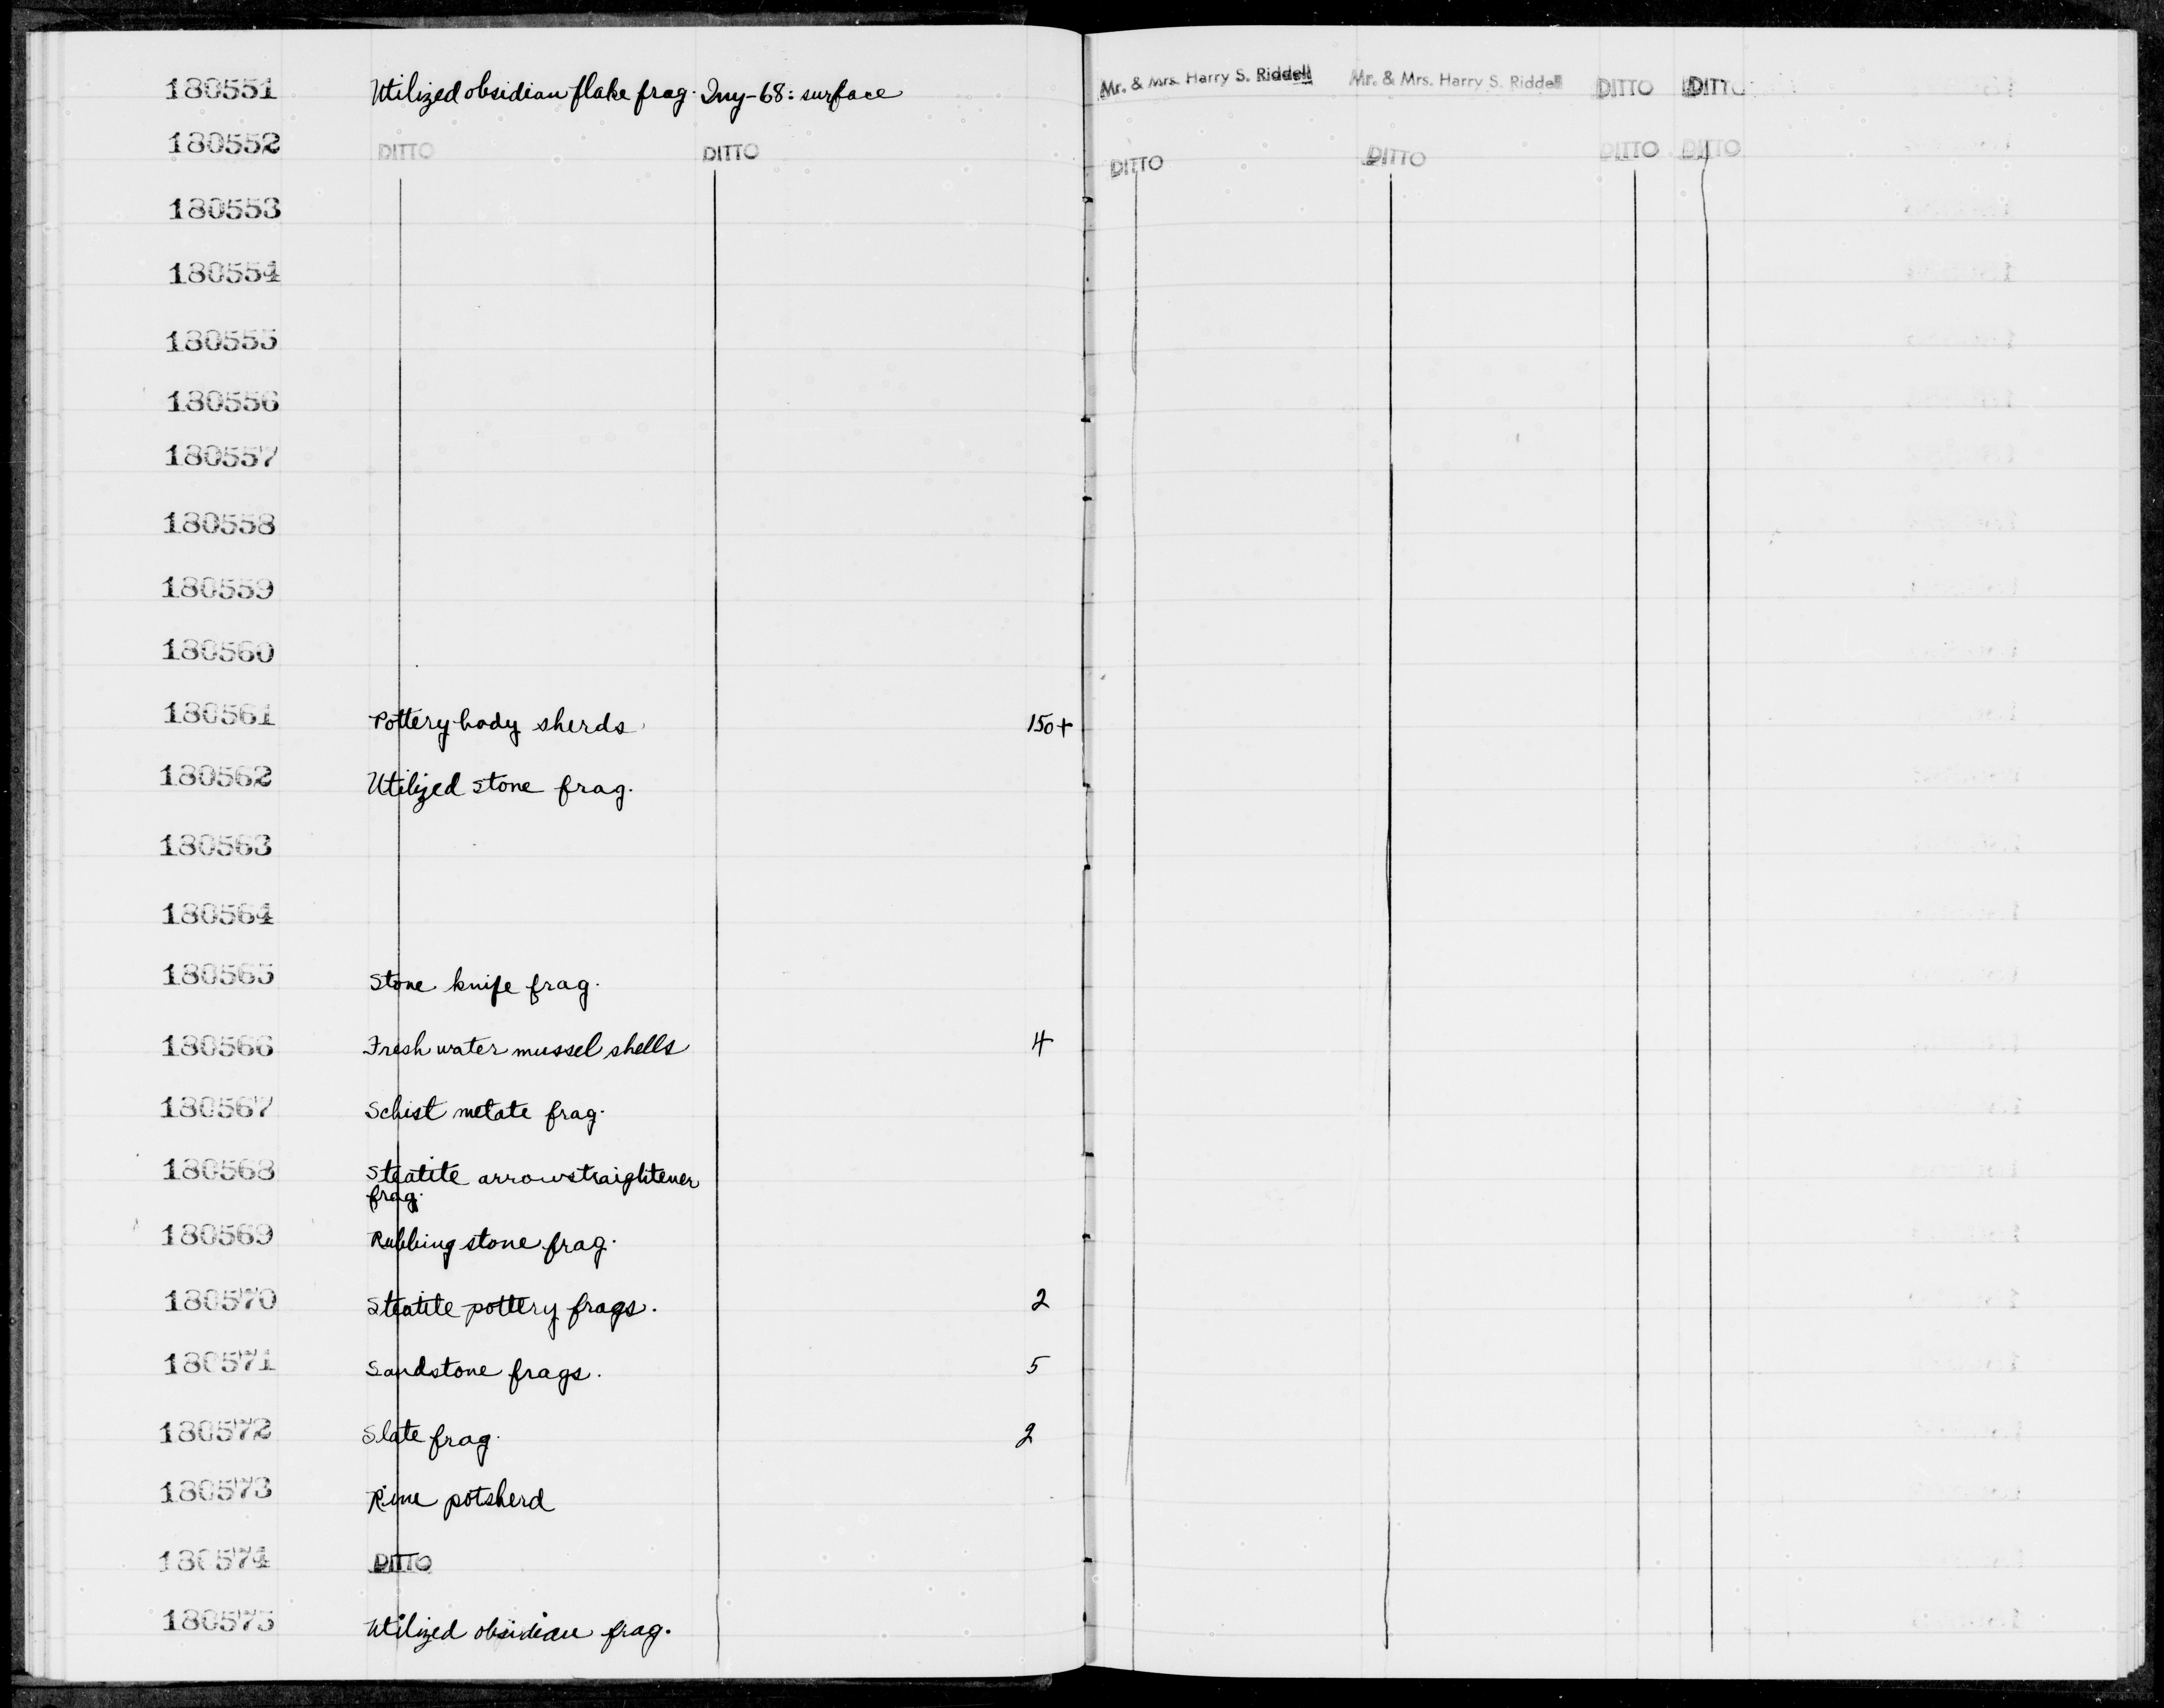 180551 Utilized obsidian flake frag. Iny-68: surface Mr. & Mrs. Harry S. Riddell Mr. & Mrs. Harry S. Riddell DITTO DITTO
180552 DITTO DITTO DITTO DITTO DITTO DITTO
180553
180554
180555
180556
180557
180558
180559
180560
180561 Pottery body sherds 150+
180562 Utilized stone frag.
180563
180564
180565 Stone knife frag.
180566 Fresh water mussel shells 4
180567 Schist metate frag.
180568 Steatite arrowstraightener
frag.
180569 Rubbing stone frag.
180570 Steatite pottery frags. 2
180571 Sandstone frags. 5
180572 Slate frag. 2
180573 Rim potsherd
180574 DITTO
180575 Utilized obsidian frag.